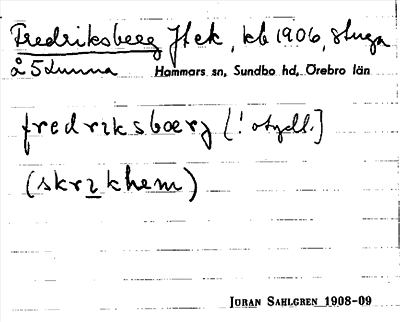 Fredriksberg Jfek, kb 1906, stuga
å 5 Lunna Hammars sn, Sundbo hd, Örebro län
fredrɩksbœrj (! otydl.]
(skrɩkhem)
JURAN SAHLGREN 1908-09